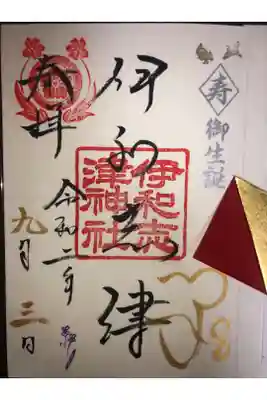 寿
御生誕
伊和志津
伊和志
津神社
奉拝
令和二年
九月三日